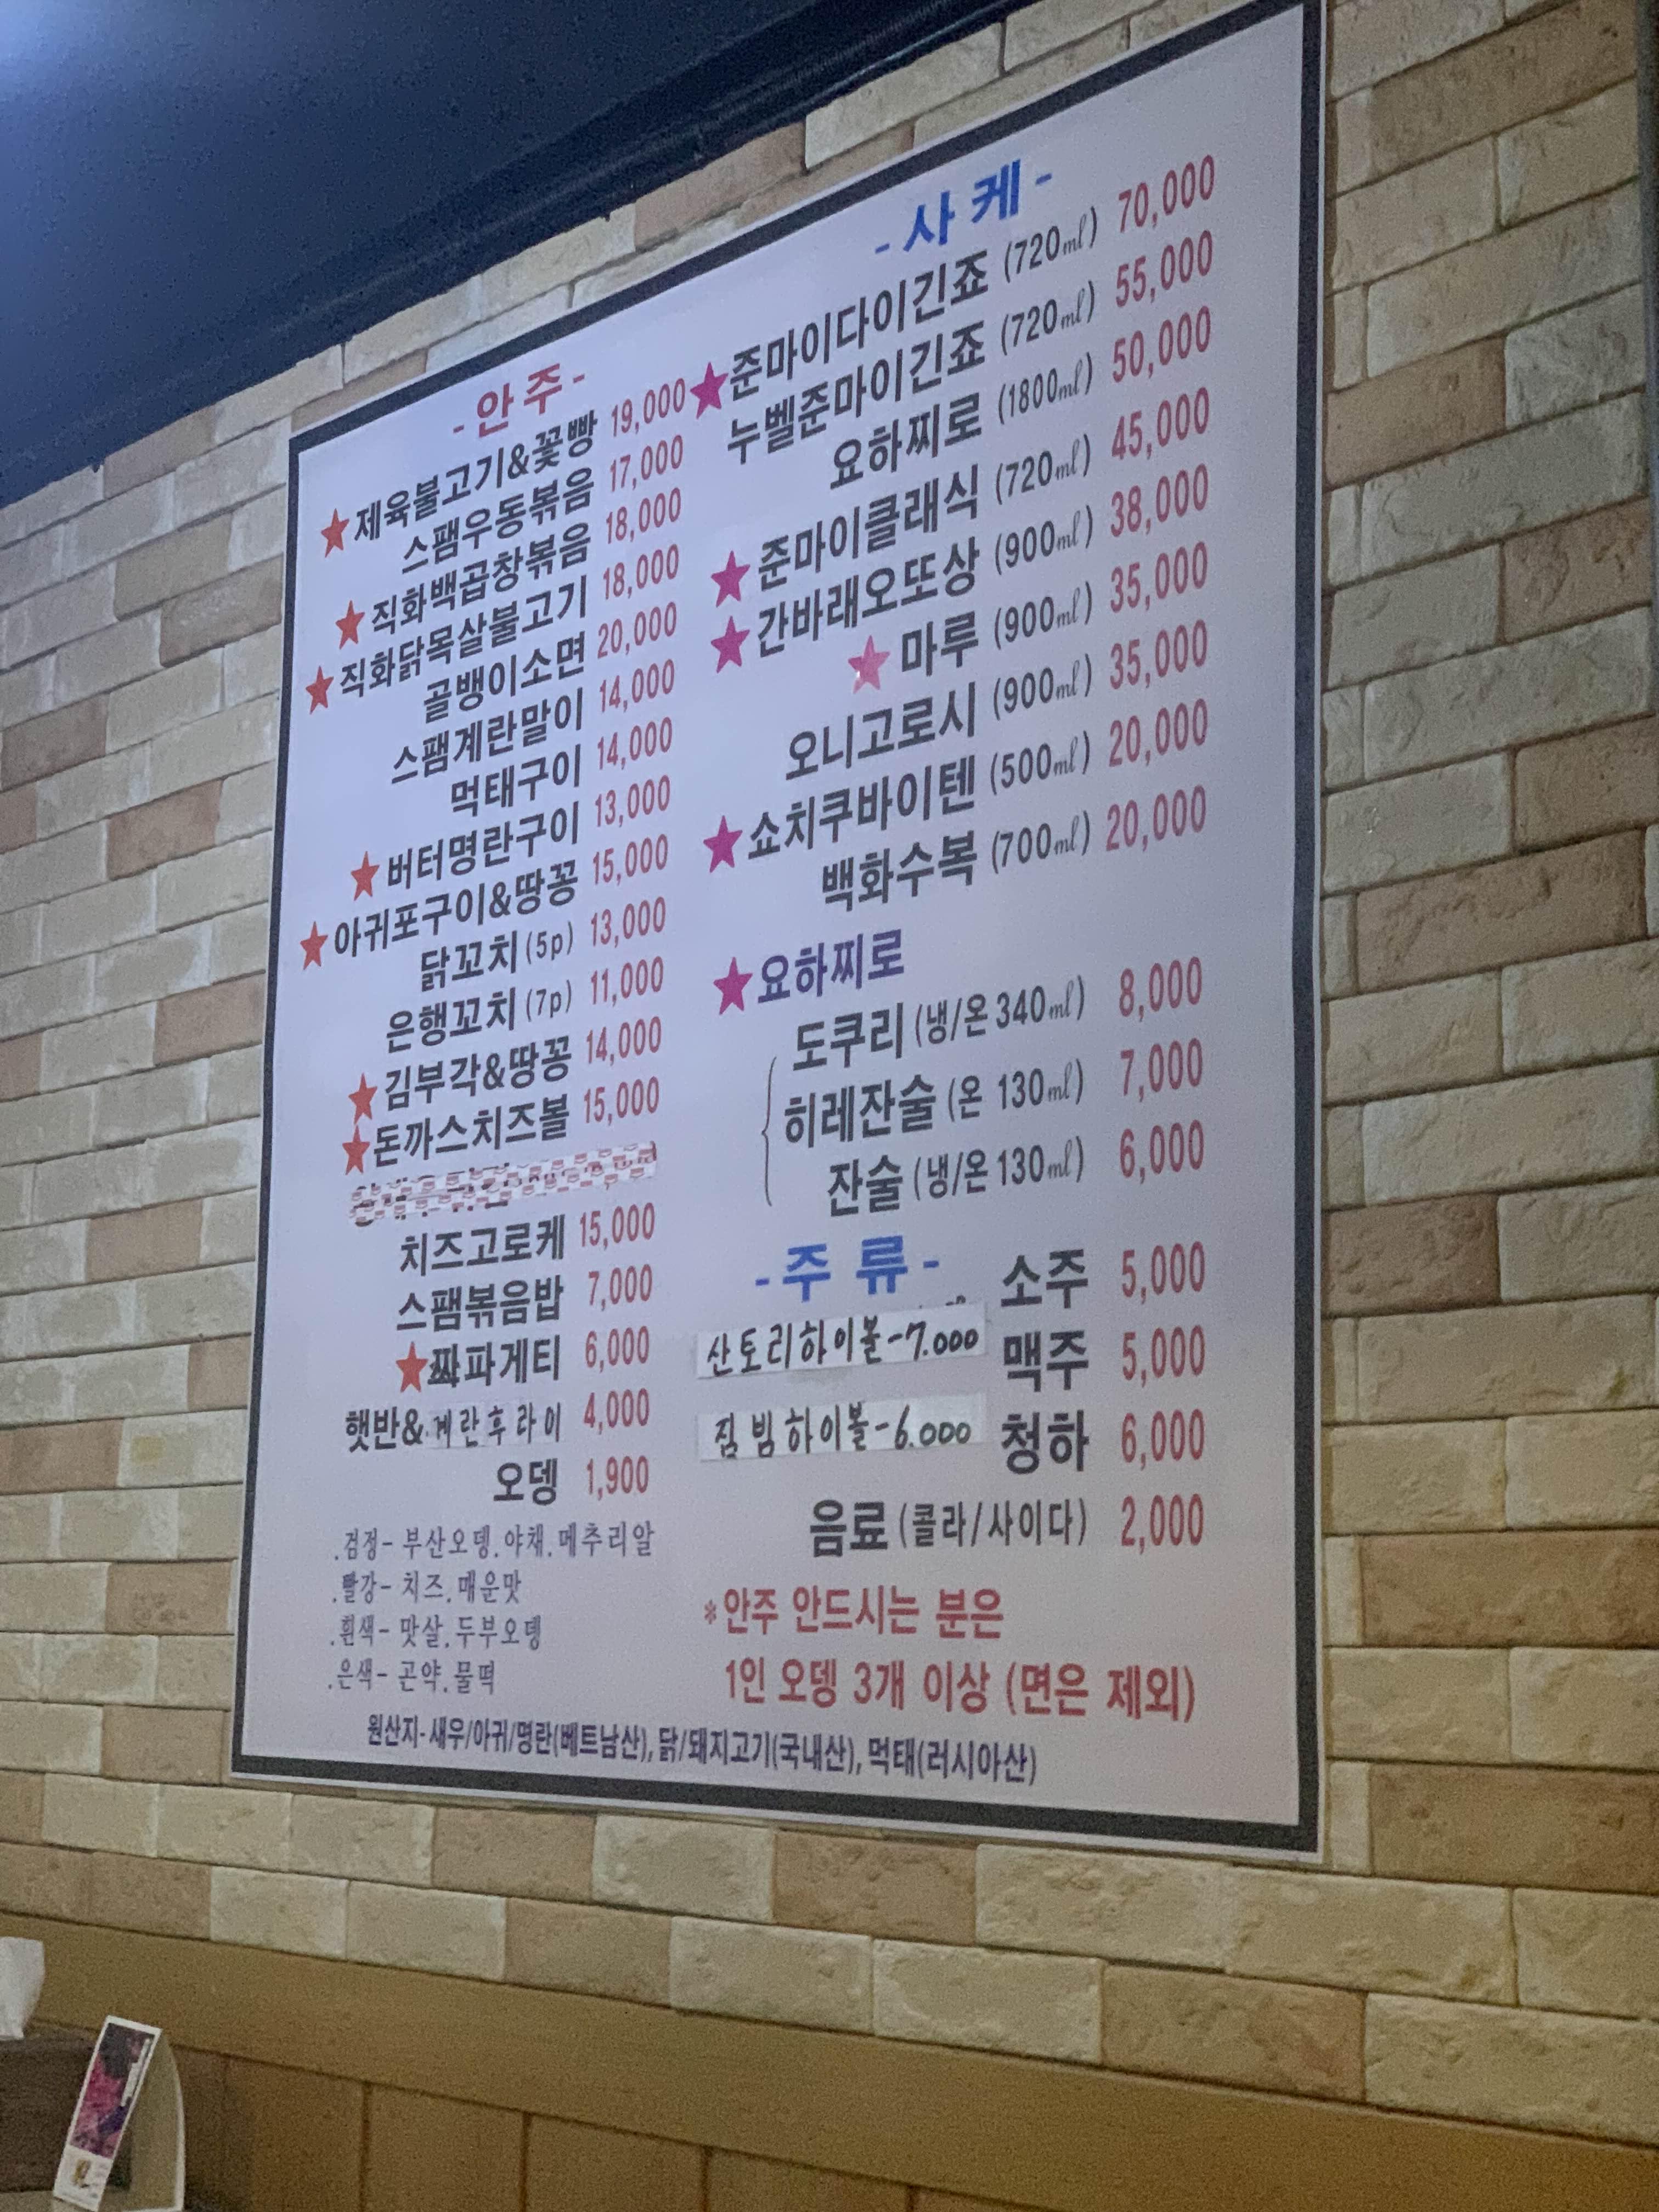 -안주-
★제육불고기&꽃빵 19,000
스팸우동볶음 17,000
★직화백곱창볶음 18,000
★직화닭목살불고기 18,000
골뱅이소면 20,000
스팸계란말이 14,000
먹태구이 14,000
★버터명란구이 13,000
★아귀포구이&땅꽁 15,000
닭꼬치(5p) 13,000
은행꼬치(7p) 11,000
★김부각&땅꽁 14,000
★돈까스치즈볼 15,000
치즈고로케 15,000
스팸볶음밥 7,000
★짜파게티 6,000
햇반&계란후라이 4,000
오뎅 1,900
.검정-부산오뎅.야채.메추리알
.빨강-치즈.매운맛
.흰색-맛살.두부오뎅
.은색-곤약.물떡
-사케-
★준마이다이긴죠 (720㎖) 70,000
누벨준마이긴죠 (720㎖) 55,000
요하찌로 (1800㎖) 50,000
★준마이클래식 (720㎖) 45,000
★간바래오또상 (900㎖) 38,000
★마루 (900㎖) 35,000
오니고로시 (900㎖) 35,000
★쇼치쿠바이텐 (500㎖) 20,000
백화수복 (700㎖) 20,000
★요하찌로
도쿠리 (냉/온 340㎖) 8,000
히레잔술 (온 130㎖) 7,000
잔술 (냉/온 130㎖) 6,000
-주류-
소주 5,000
산토리하이볼-7.000
맥주 5,000
짐빔하이볼-6.000
청하 6,000
음료 (콜라/사이다) 2,000
*안주 안드시는 분은
1인 오뎅 3개 이상 (면은 제외)
원산지-새우/아귀/명란(베트남산), 닭/돼지고기(국내산), 먹태(러시아산)